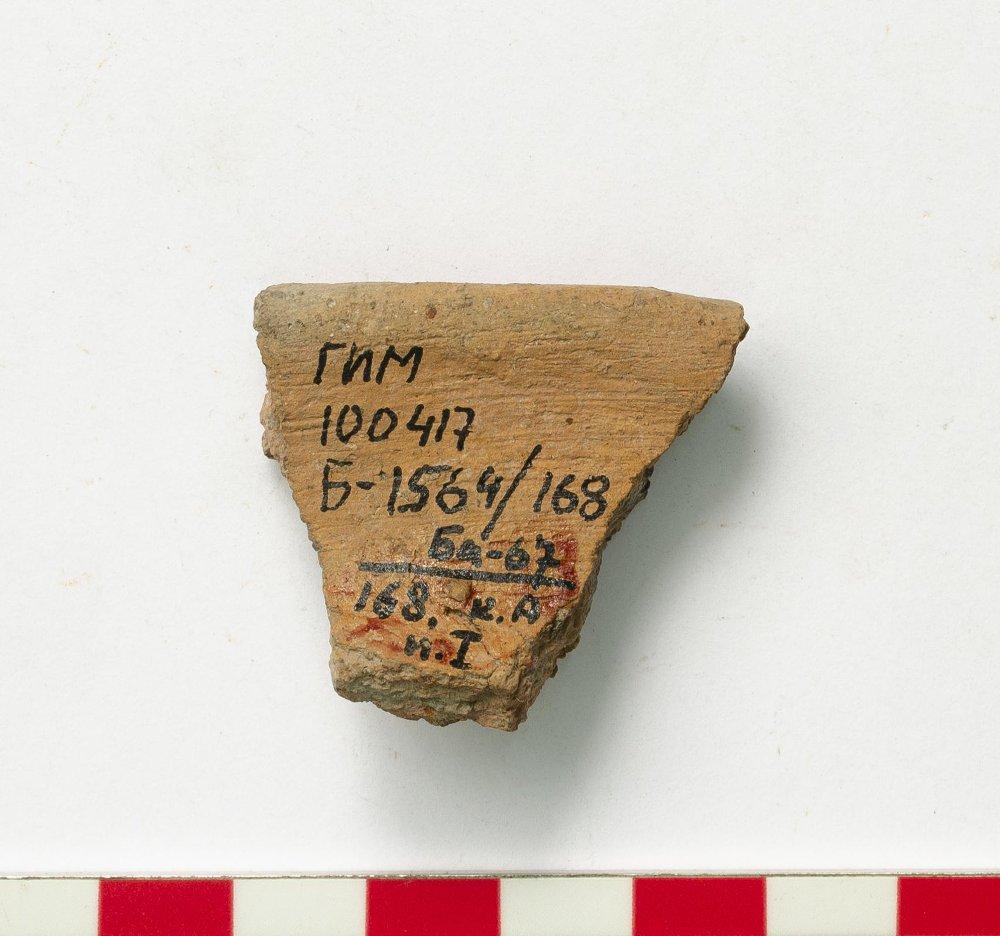 ГИМ
100417
Б-1564/168
Ба-67
168. к.А
п.I